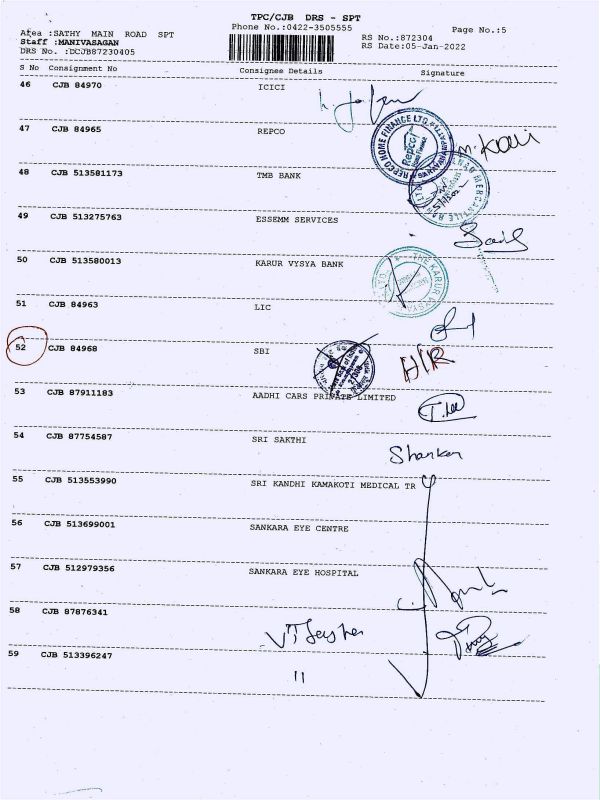 TPC/CJB DRS - SPT
Area :SATHY MAIN ROAD SPT
Phone No.:0422-3505555
Page No.:5
Staff :MANIVASAGAN
RS No.:872304
DRS No. :DCJB87230405
RS Date:05-Jan-2022
S No Consignment No Consignee Details Signature
46 CJB 84970 ICICI
47 CJB 84965 REPCO
REPCO HOME FINANCE LTD.
Repco
Home Finance
M. Kali
48 CJB 513581173 TMB BANK
49 CJB 513275763 ESSEMM SERVICES
50 CJB 513580013 KARUR VYSYA BANK
THE KARUR VYSYA
51 CJB 84963 LIC
52 CJB 84968 SBI
H/R
53 CJB 87911183 AADHI CARS PRIVATE LIMITED
54 CJB 87754587 SRI SAKTHI
Shankar
55 CJB 513553990 SRI KANDHI KAMAKOTI MEDICAL TR
56 CJB 513699001 SANKARA EYE CENTRE
57 CJB 512979356 SANKARA EYE HOSPITAL
58 CJB 87876341
59 CJB 513396247
11